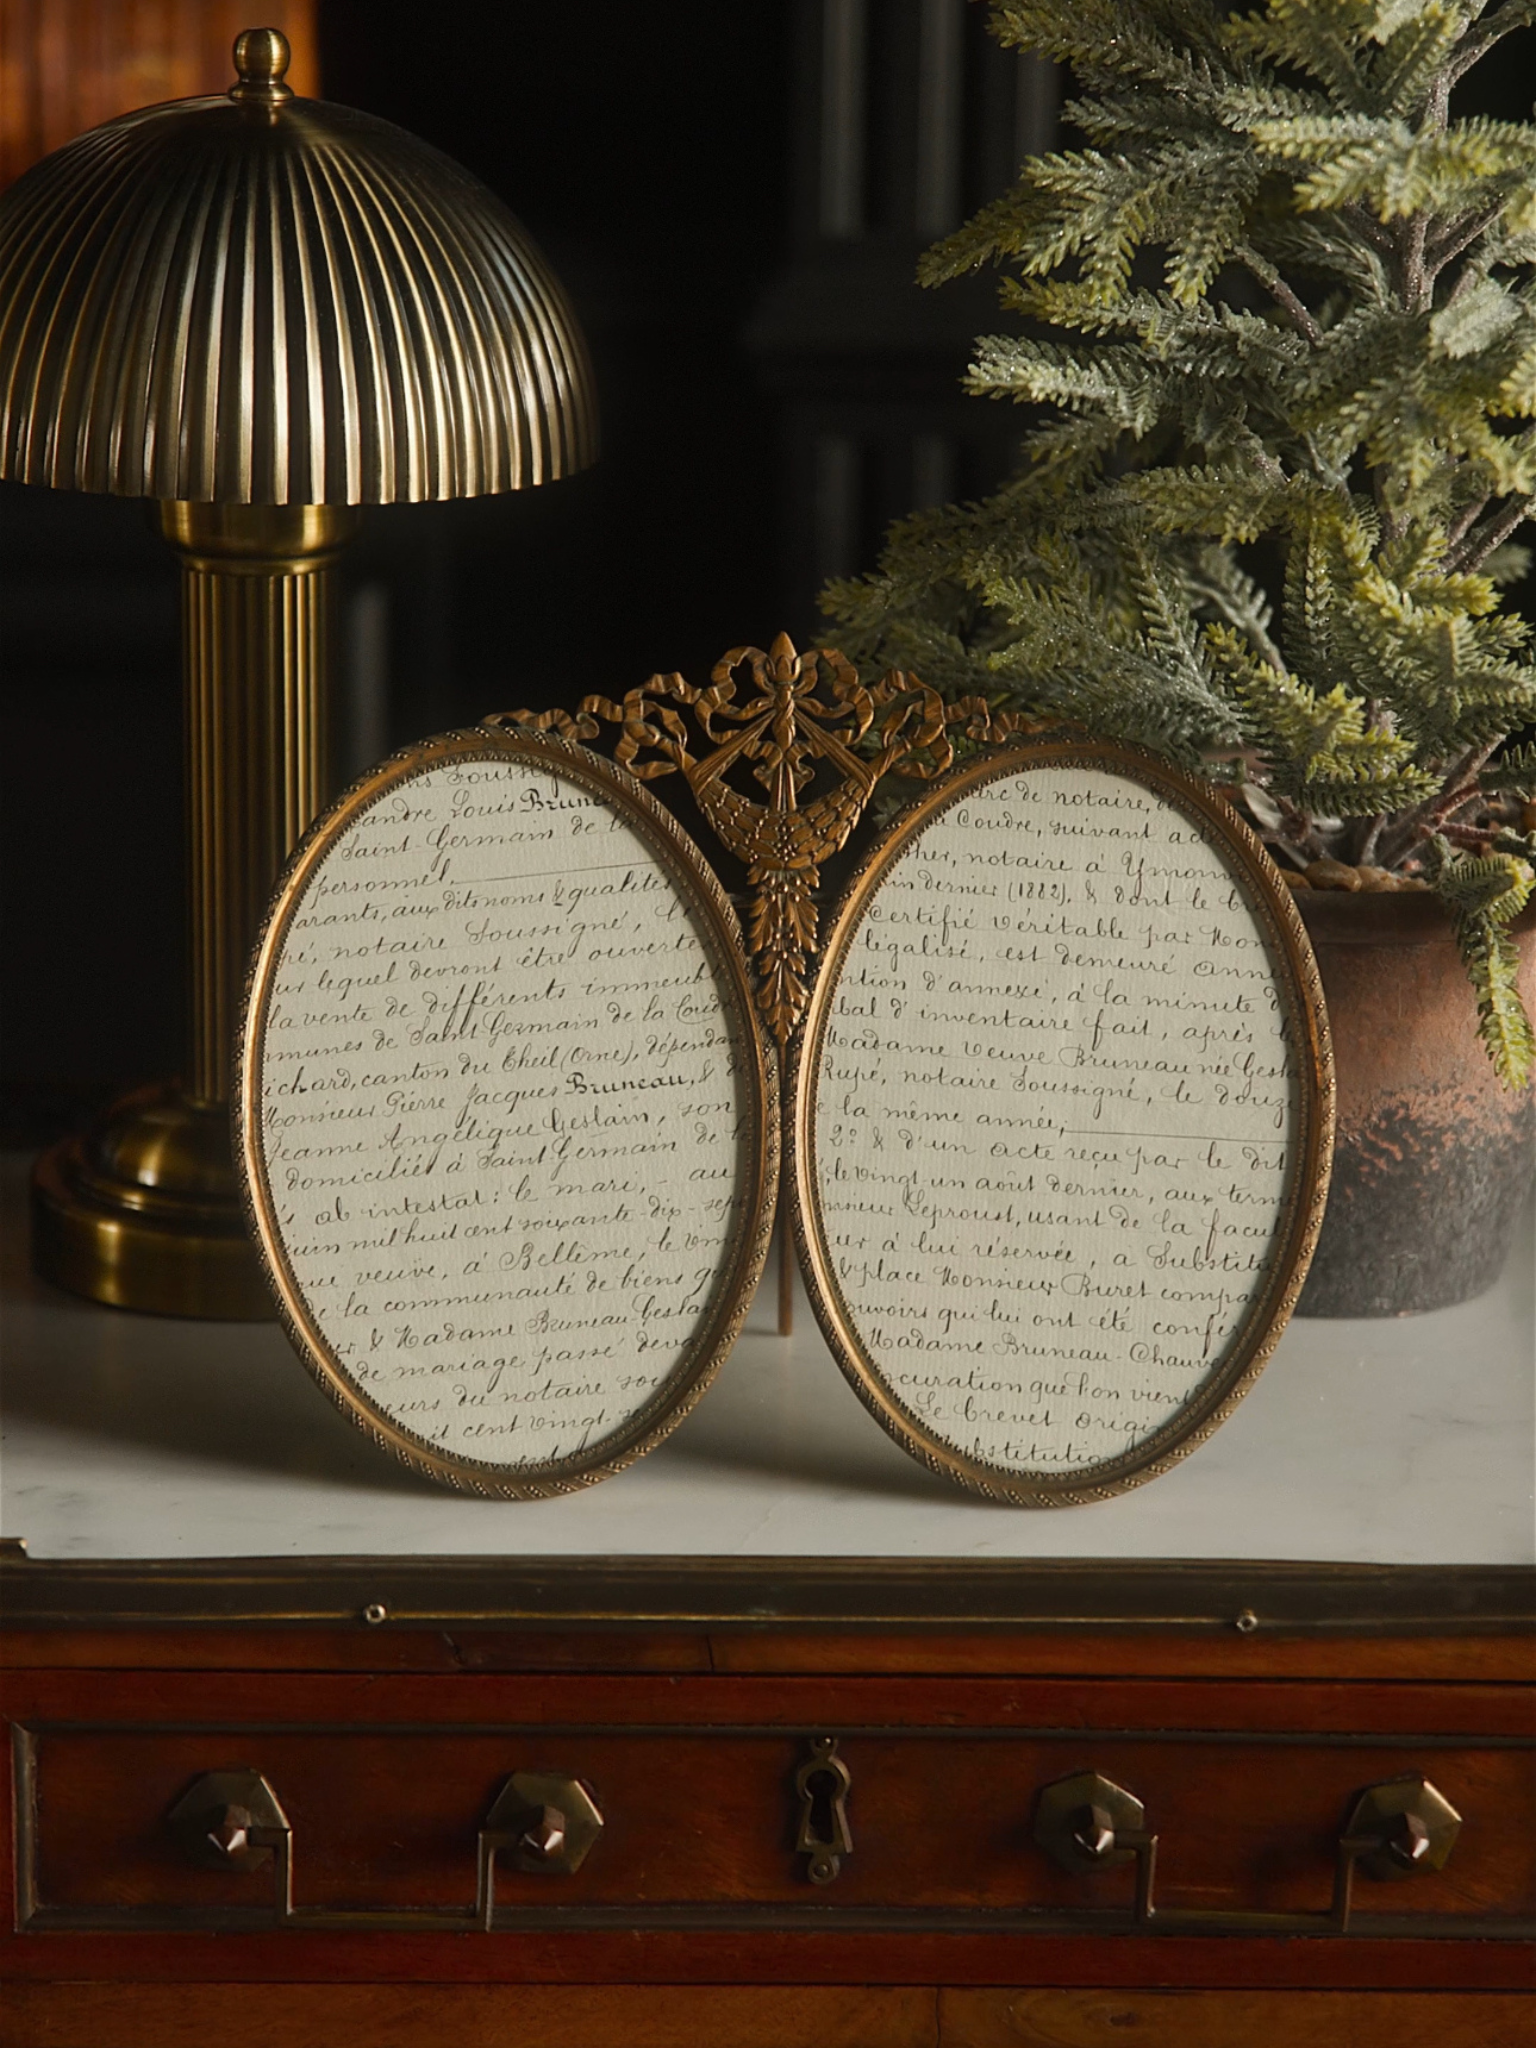 Soussig
andre Louis Brune
Saint-Germain de la
personnel.
arants, aux dits noms & qualités
ré, notaire soussigné, le
ur lequel devront être ouvertes
la vente de différents immeubl
munes de Saint Germain de la Coud
ichard, canton du Theil (Orne), dépendan
Monsieur Pierre Jacques Bruneau, & d
Jeanne Angélique Geslain, son
domiciliés à Saint Germain de l
s ab intestat: le mari, - au
juin mil huit cent soixante-dix-sept
que veuve, à Bellême, le vin
de la communauté de biens q
& Madame Bruneau-Gesla
de mariage passé deva
eurs du notaire so
it cent vingt-s
arc de notaire, d
a Coudre, suivant ac
her, notaire à Ymonvi
in dernier (1882), & dont le b
Certifié véritable par Mon
légalisé, est demeuré Anne
ntion d'annexe, à la minute d
bal d'inventaire fait, après l
Madame veuve Bruneau née Gesla
Rupé, notaire soussigné, le douze
e la même année;
2º & d'un acte reçu par le dit
, le vingt-un août dernier, aux term
nsieur Leproust, usant de la facul
eur à lui réservée, a Substit
& place Monsieur Buret compa
ouvoirs qui lui ont été confér
Madame Bruneau-Chauve
ocuration que l'on vien
Le brevet origi
ubstitutio